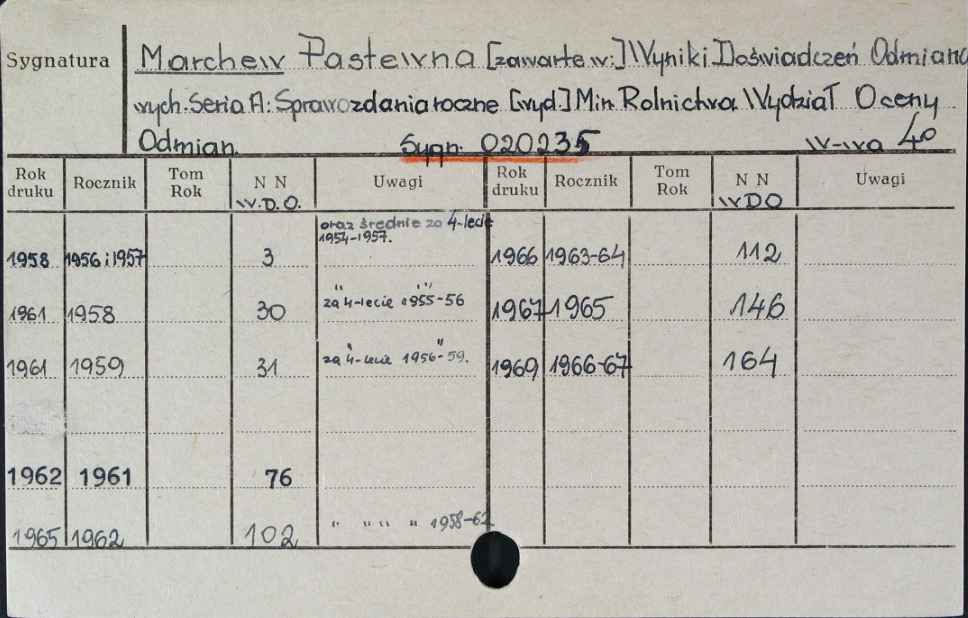 Sygnatura
Marchew Pastewna [zawarte w:] Wyniki Doświadczeń Odmiano
wych. Seria A: Sprawozdania roczne [wyd.] Min. Rolnictwa. Wydział Oceny
Odmian. Sygn. 020235 W-wa 4°
Rok druku Rocznik Tom Rok N N W.D.O. Uwagi Rok druku Rocznik Tom Rok N N WDO Uwagi
oraz średnie za 4-lecie
1954-1957.
1958 1956 i 1957 3 1966 1963-64 112
" "
za 4-lecie 1955-56
1961 1958 30 1967 1965 146
" "
za 4-lecie 1956-59.
1961 1959 31 1969 1966-67 164
1962 1961 76
" " " " 1958-62
1965 1962 102